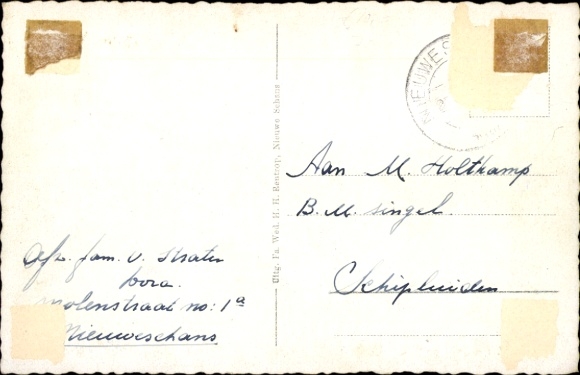 Afz. fam. v. Straten
Dora.
Molenstraat no: 1a
Nieuweschans
Uitg. Fa. Wed. H. H. Eentrop, Nieuwe Schans
NIEUWES
Aan M. Holtkamp
B. M. singel.
Schipluiden